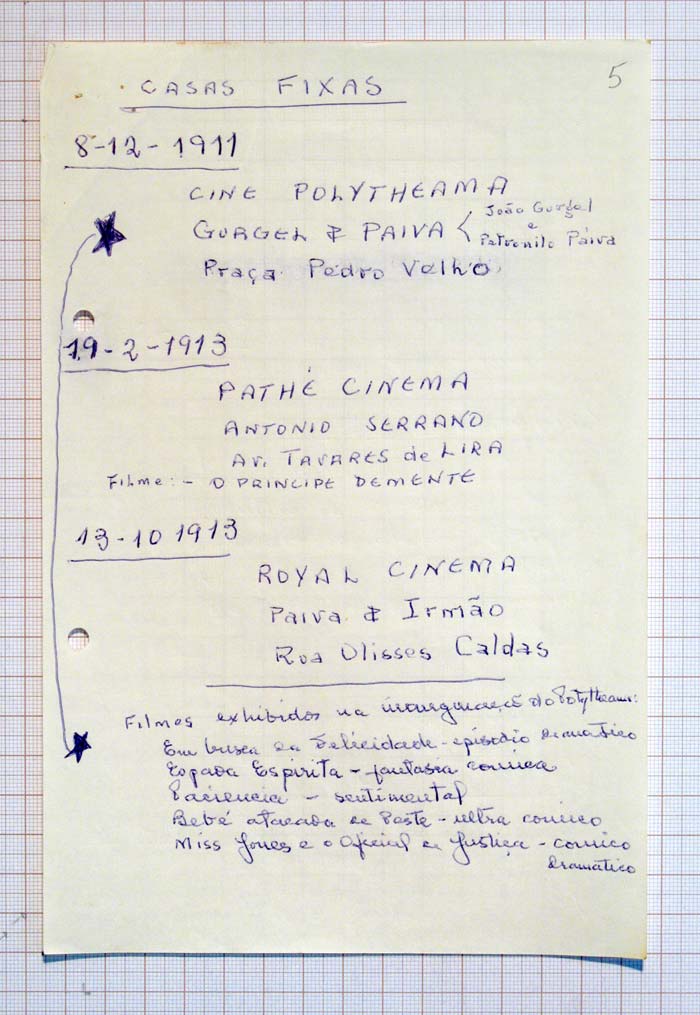 5
CASAS FIXAS
8-12-1911
CINE POLYTHEAMA
GURGEL & PAIVA < João Gurgel
e
Petronilo Paiva
Praça Pedro Velho
19-2-1913
PATHÉ CINEMA
ANTONIO SERRANO
AV. TAVARES de LIRA
Filme: - O PRINCIPE DEMENTE
13-10 1913
ROYAL CINEMA
Paiva & Irmão
Rua Ulisses Caldas
Filmes exhibidos na inauguração do Polytheama:
Em busca da Felicidade - episodio dramatico
Espada Espirita - fantasia comica
Paciencia - sentimental
Bebé atacada de Peste - ultra comico
Miss Jones e o Oficial de Justiça - comico
dramático